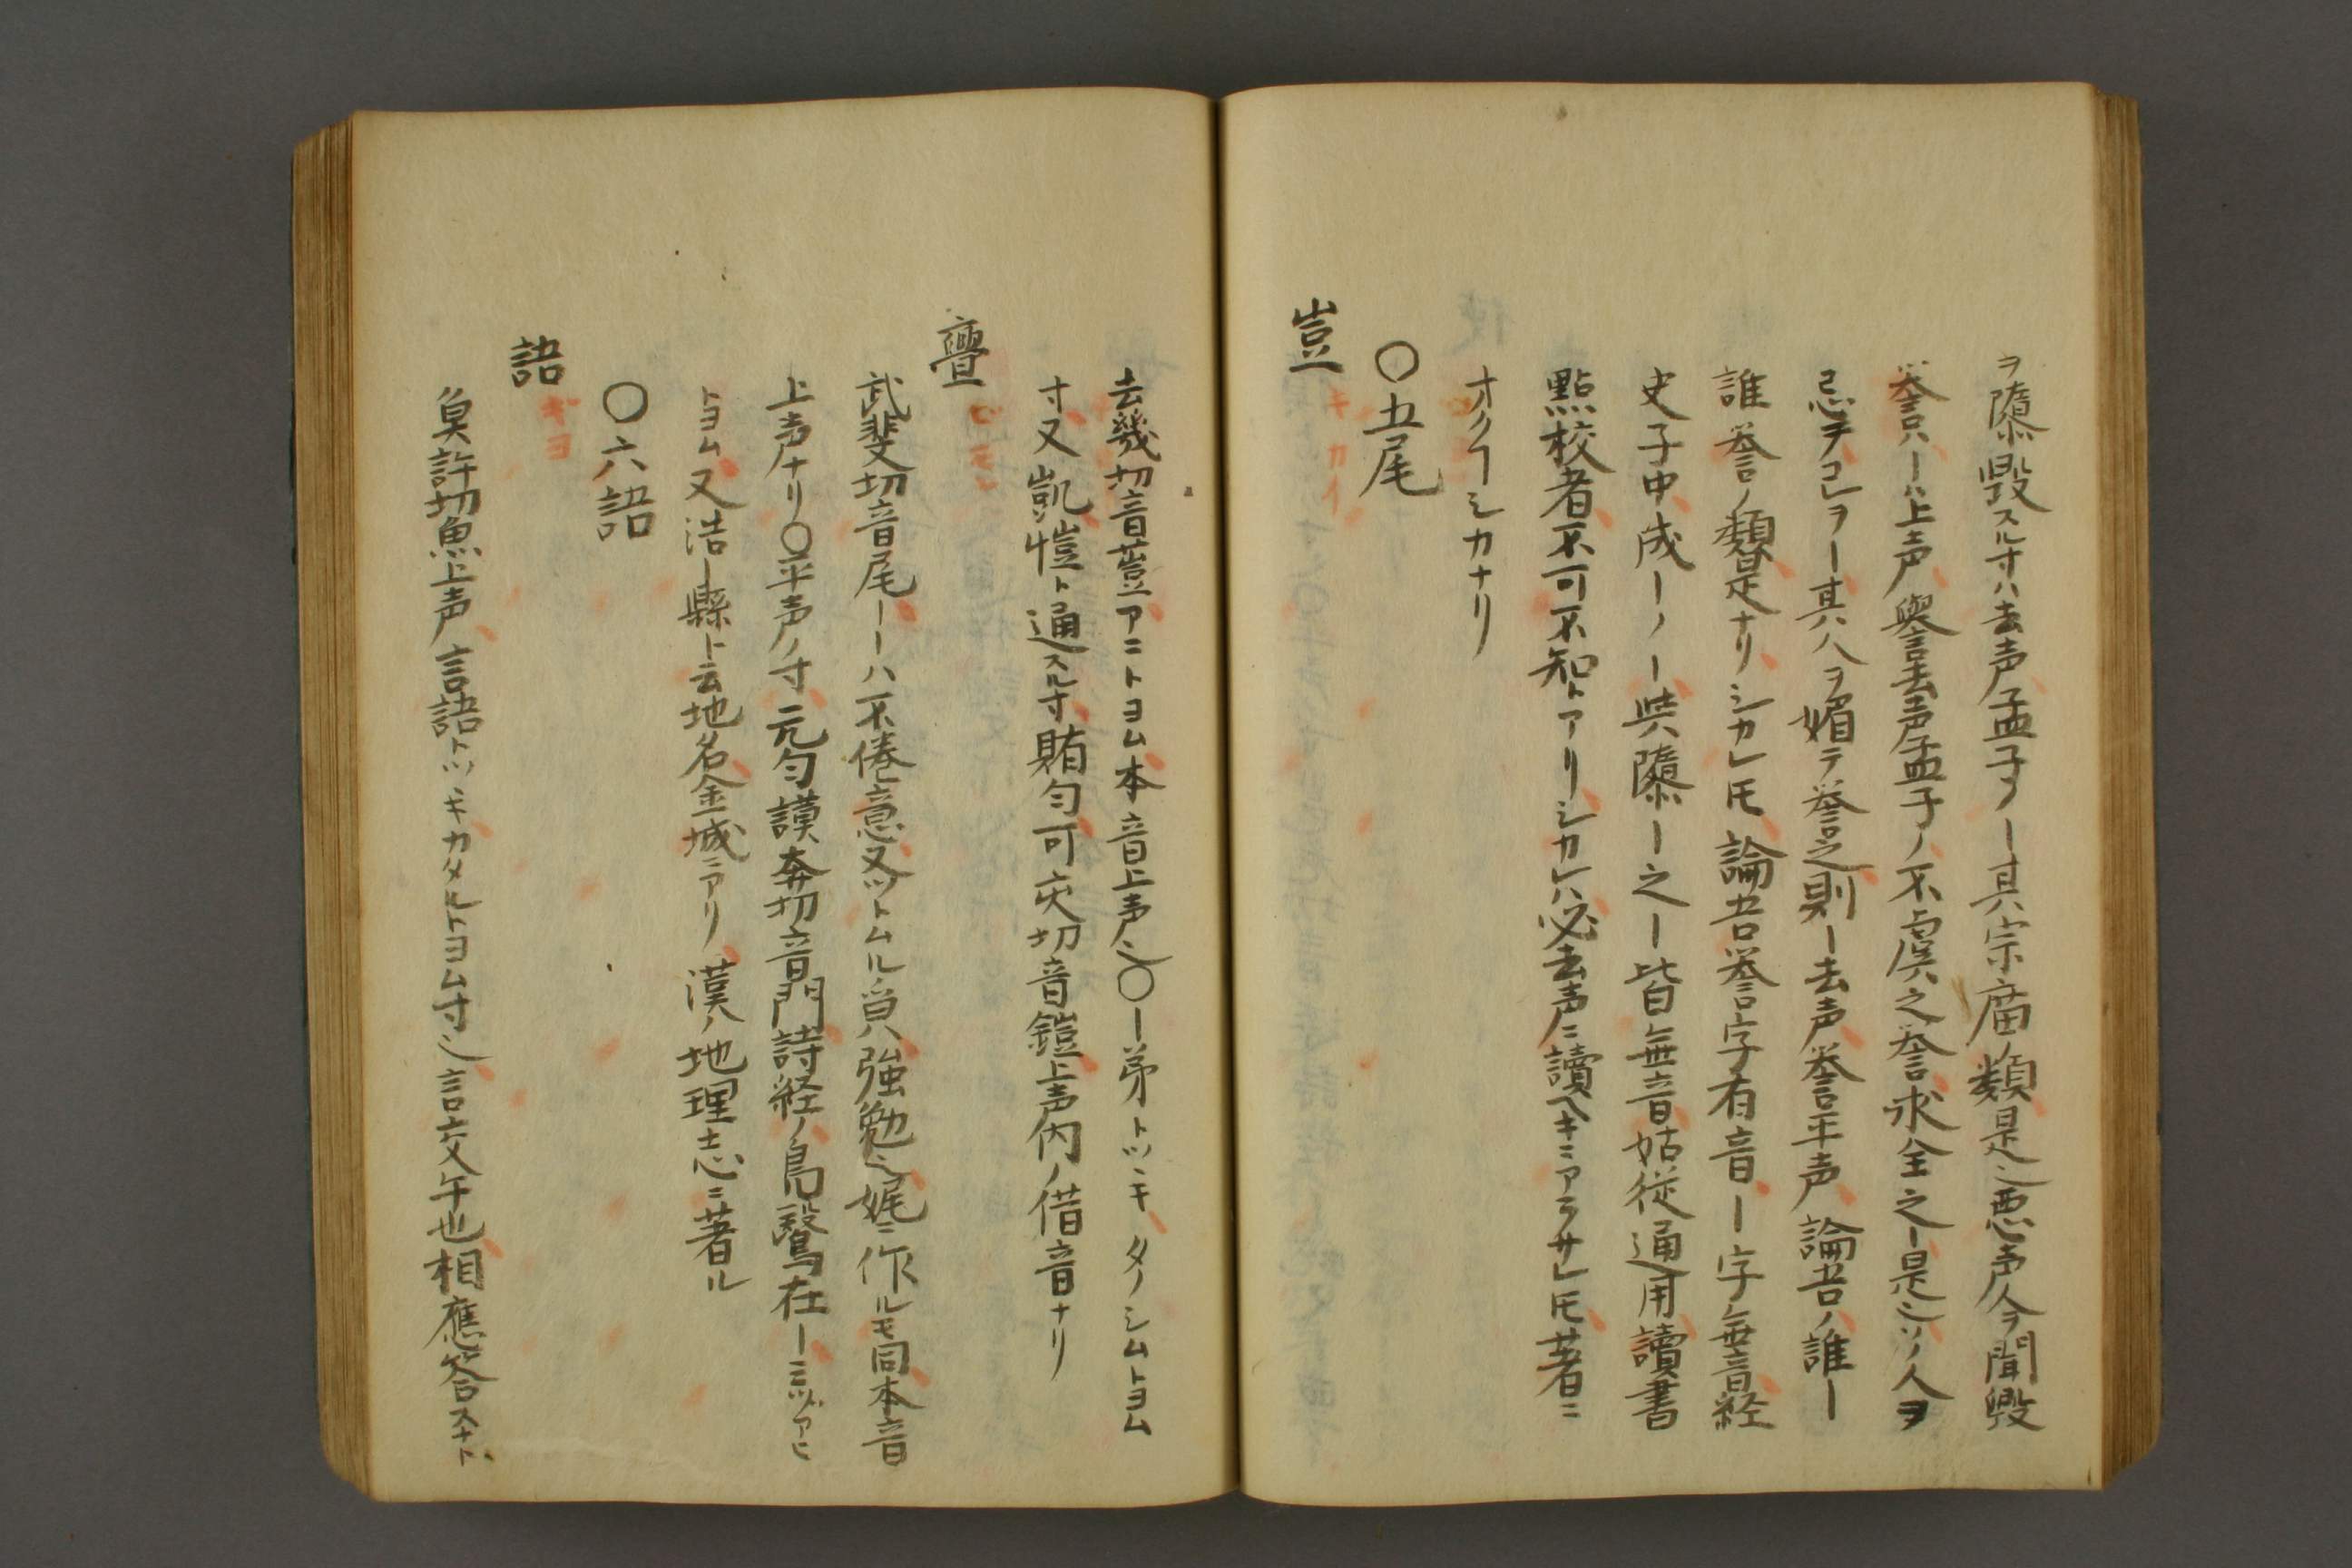 ヲ隳毀スル寸ハ去声孟子ノー其宗庿ノ類是也悪声令聞毀
誉只ー八上声與言去声孟子ノ不虞之誉求全之ー是也ソノ人ヲ
忌テコレヲー其人ヲ媚テ誉之則ー去声誉平声論吾ノ誰ー
誰誉ノ類是ナリシカレ𪜈論吾誉字有音ー字無音経
史子中成ーノー與隳ー之ー皆無音姑従通用讀書
點校者不可不知トアリシカレハ必去声ニ讀ヘキニアラサレ𪜈著ニ
オクーシカナリ
〇五尾
豈 キ カイ
去幾切音䔇アニトヨム本音上声也〇ー弟トツヽキタノシムトヨム
寸又凱愷ト通スル寸賄匀可亥切音鎧上声内ノ借音ナリ
亹 ビ モン
武斐切音尾ーーハ不倦意又ツトムル皃強勉也娓ニ作ルモ同本音
上声ナリ〇平声ノ寸元匀謨奔切音門詩経ノ鳬鷖在ーミヅアヒ
トヨム又浩ー縣ト云地名金城ニアリ漢ノ地理志ニ著ル
〇六語
語 ギヨ
魚許切魚上声言語トツヽキカタルトヨム寸也言交午也相應答スナド